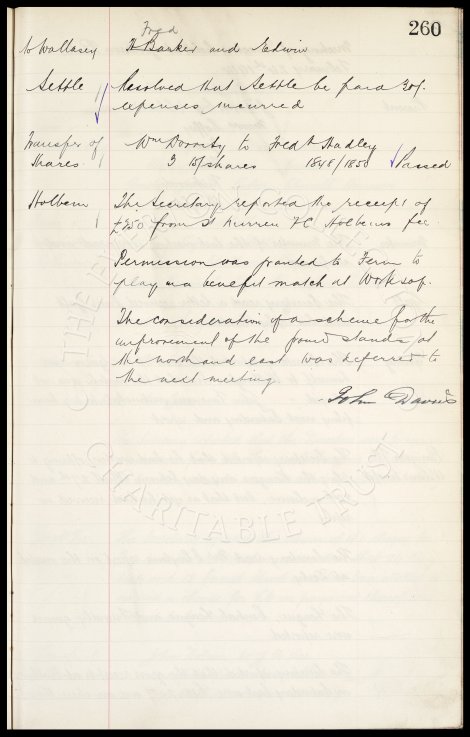 260
Fred
to Wallasey H Barker and Edwin
Settle Resolved that Settle be paid 20/-
expenses incurred
Transfer of Wm Dorothy to Fredk Hadley
Shares 3 B/shares 1848/1850 Passed
Holbem The Secretary reported the receipt of
£250 from St Mirren FC Holbems fee.
Permission was granted to Fern to
play in a benefit match at Worksop.
The consideration of a scheme for the
improvement of the stands at
the north and east was deferred to
the next meeting
John Davies
THE
CHARITABLE TRUST